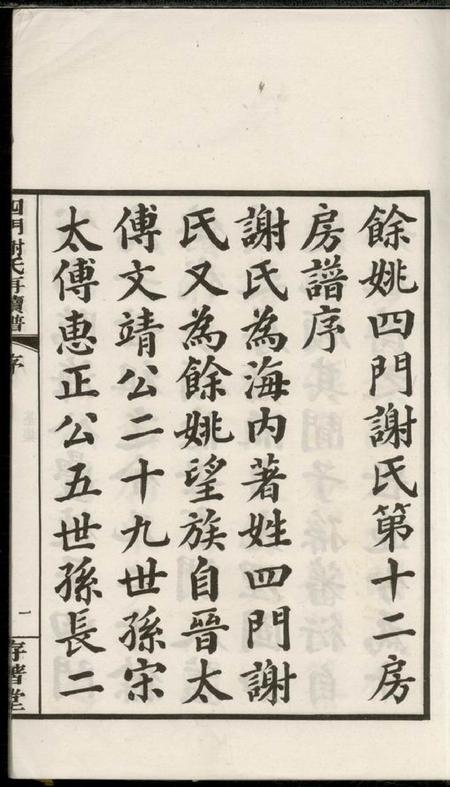 餘姚四門謝氏第十二房
房譜序
謝氏為海内著姓四門謝
氏又為餘姚望族自晉太
傅文靖公二十九世孫宋
太傅惠正公五世孫長二
四門謝氏再續譜
序
一
存著堂